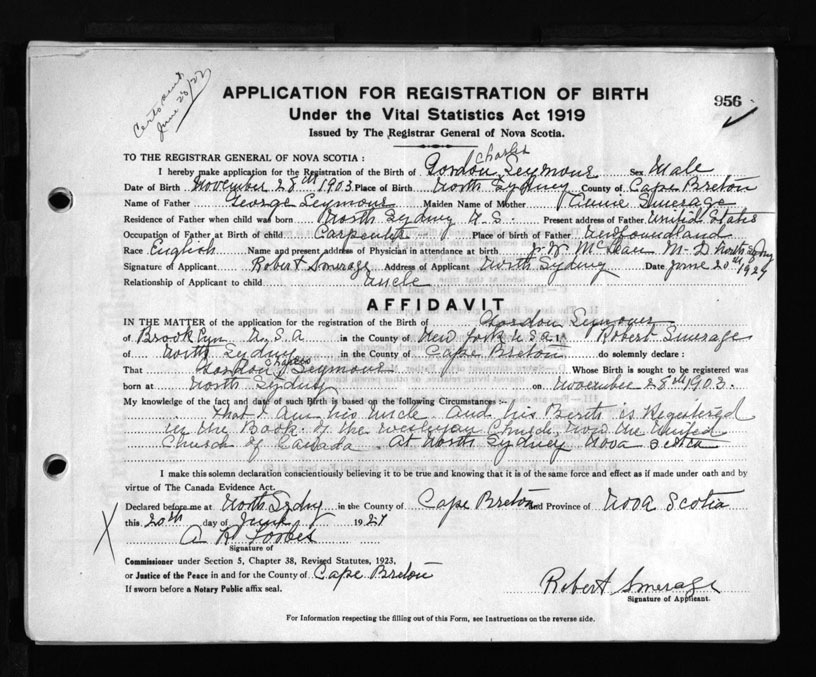 Cert. send
June 23/27
APPLICATION FOR REGISTRATION OF BIRTH
956
Under the Vital Statistics Act 1919
Issued by The Registrar General of Nova Scotia.
TO THE REGISTRAR GENERAL OF NOVA SCOTIA :
Charles
I hereby make application for the Registration of the Birth of Gordon Seymour Sex Male
Date of Birth November 28th 1903 Place of Birth North Sydney County of Cape Breton
Name of Father George Seymour Maiden Name of Mother Annie Smerage
Residence of Father when child was born North Sydney N.S. Present address of Father United States
Occupation of Father at Birth of child Carpenter Place of birth of Father Newfoundland
Race English Name and present address of Physician in attendance at birth J. W. McLean M-D North Sydney
Signature of Applicant Robert Smerage Address of Applicant North Sydney Date June 20th 1927
Relationship of Applicant to child Uncle
AFFIDAVIT
IN THE MATTER of the application for the registration of the Birth of Gordon Seymour
of Brooklyn U.S.A in the County of New York U.S.A. I Robert Smerage
of North Sydney in the County of Cape Breton do solemnly declare :
Charles
That Gordon Seymour Whose Birth is sought to be registered was
born at North Sydney on November 28th 1903.
My knowledge of the fact and date of such Birth is based on the following Circumstances :-
That I am his Uncle and his Birth is Registered
in the Book of the Wesleyan Church, now the United
Church of Canada at North Sydney Nova Scotia
I make this solemn declaration conscientiously believing it to be true and knowing that it is of the same force and effect as if made under oath and by
virtue of The Canada Evidence Act.
Declared before me at North Sydney in the County of Cape Breton and Province of Nova Scotia
this 20th day of June 1927
X A R Forbes
Signature of
Commissioner under Section 5, Chapter 38, Revised Statutes, 1923,
or Justice of the Peace in and for the County of Cape Breton
If sworn before a Notary Public affix seal.
Robert Smerage
Signature of Applicant.
For Information respecting the filling out of this Form, see Instructions on the reverse side.